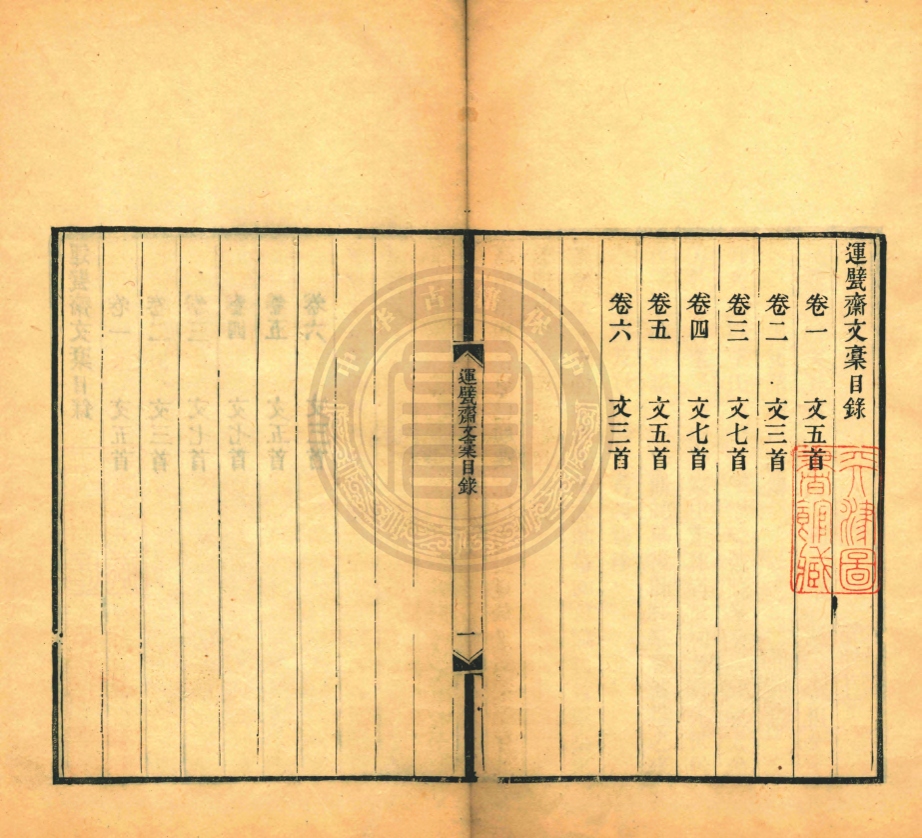 運甓齋文稾目錄
卷一 文五首
卷二 文三首
卷三 文七首
卷四 文七首
卷五 文五首
卷六 文三首
運甓齋文稾目錄
一
天津圖
書館藏